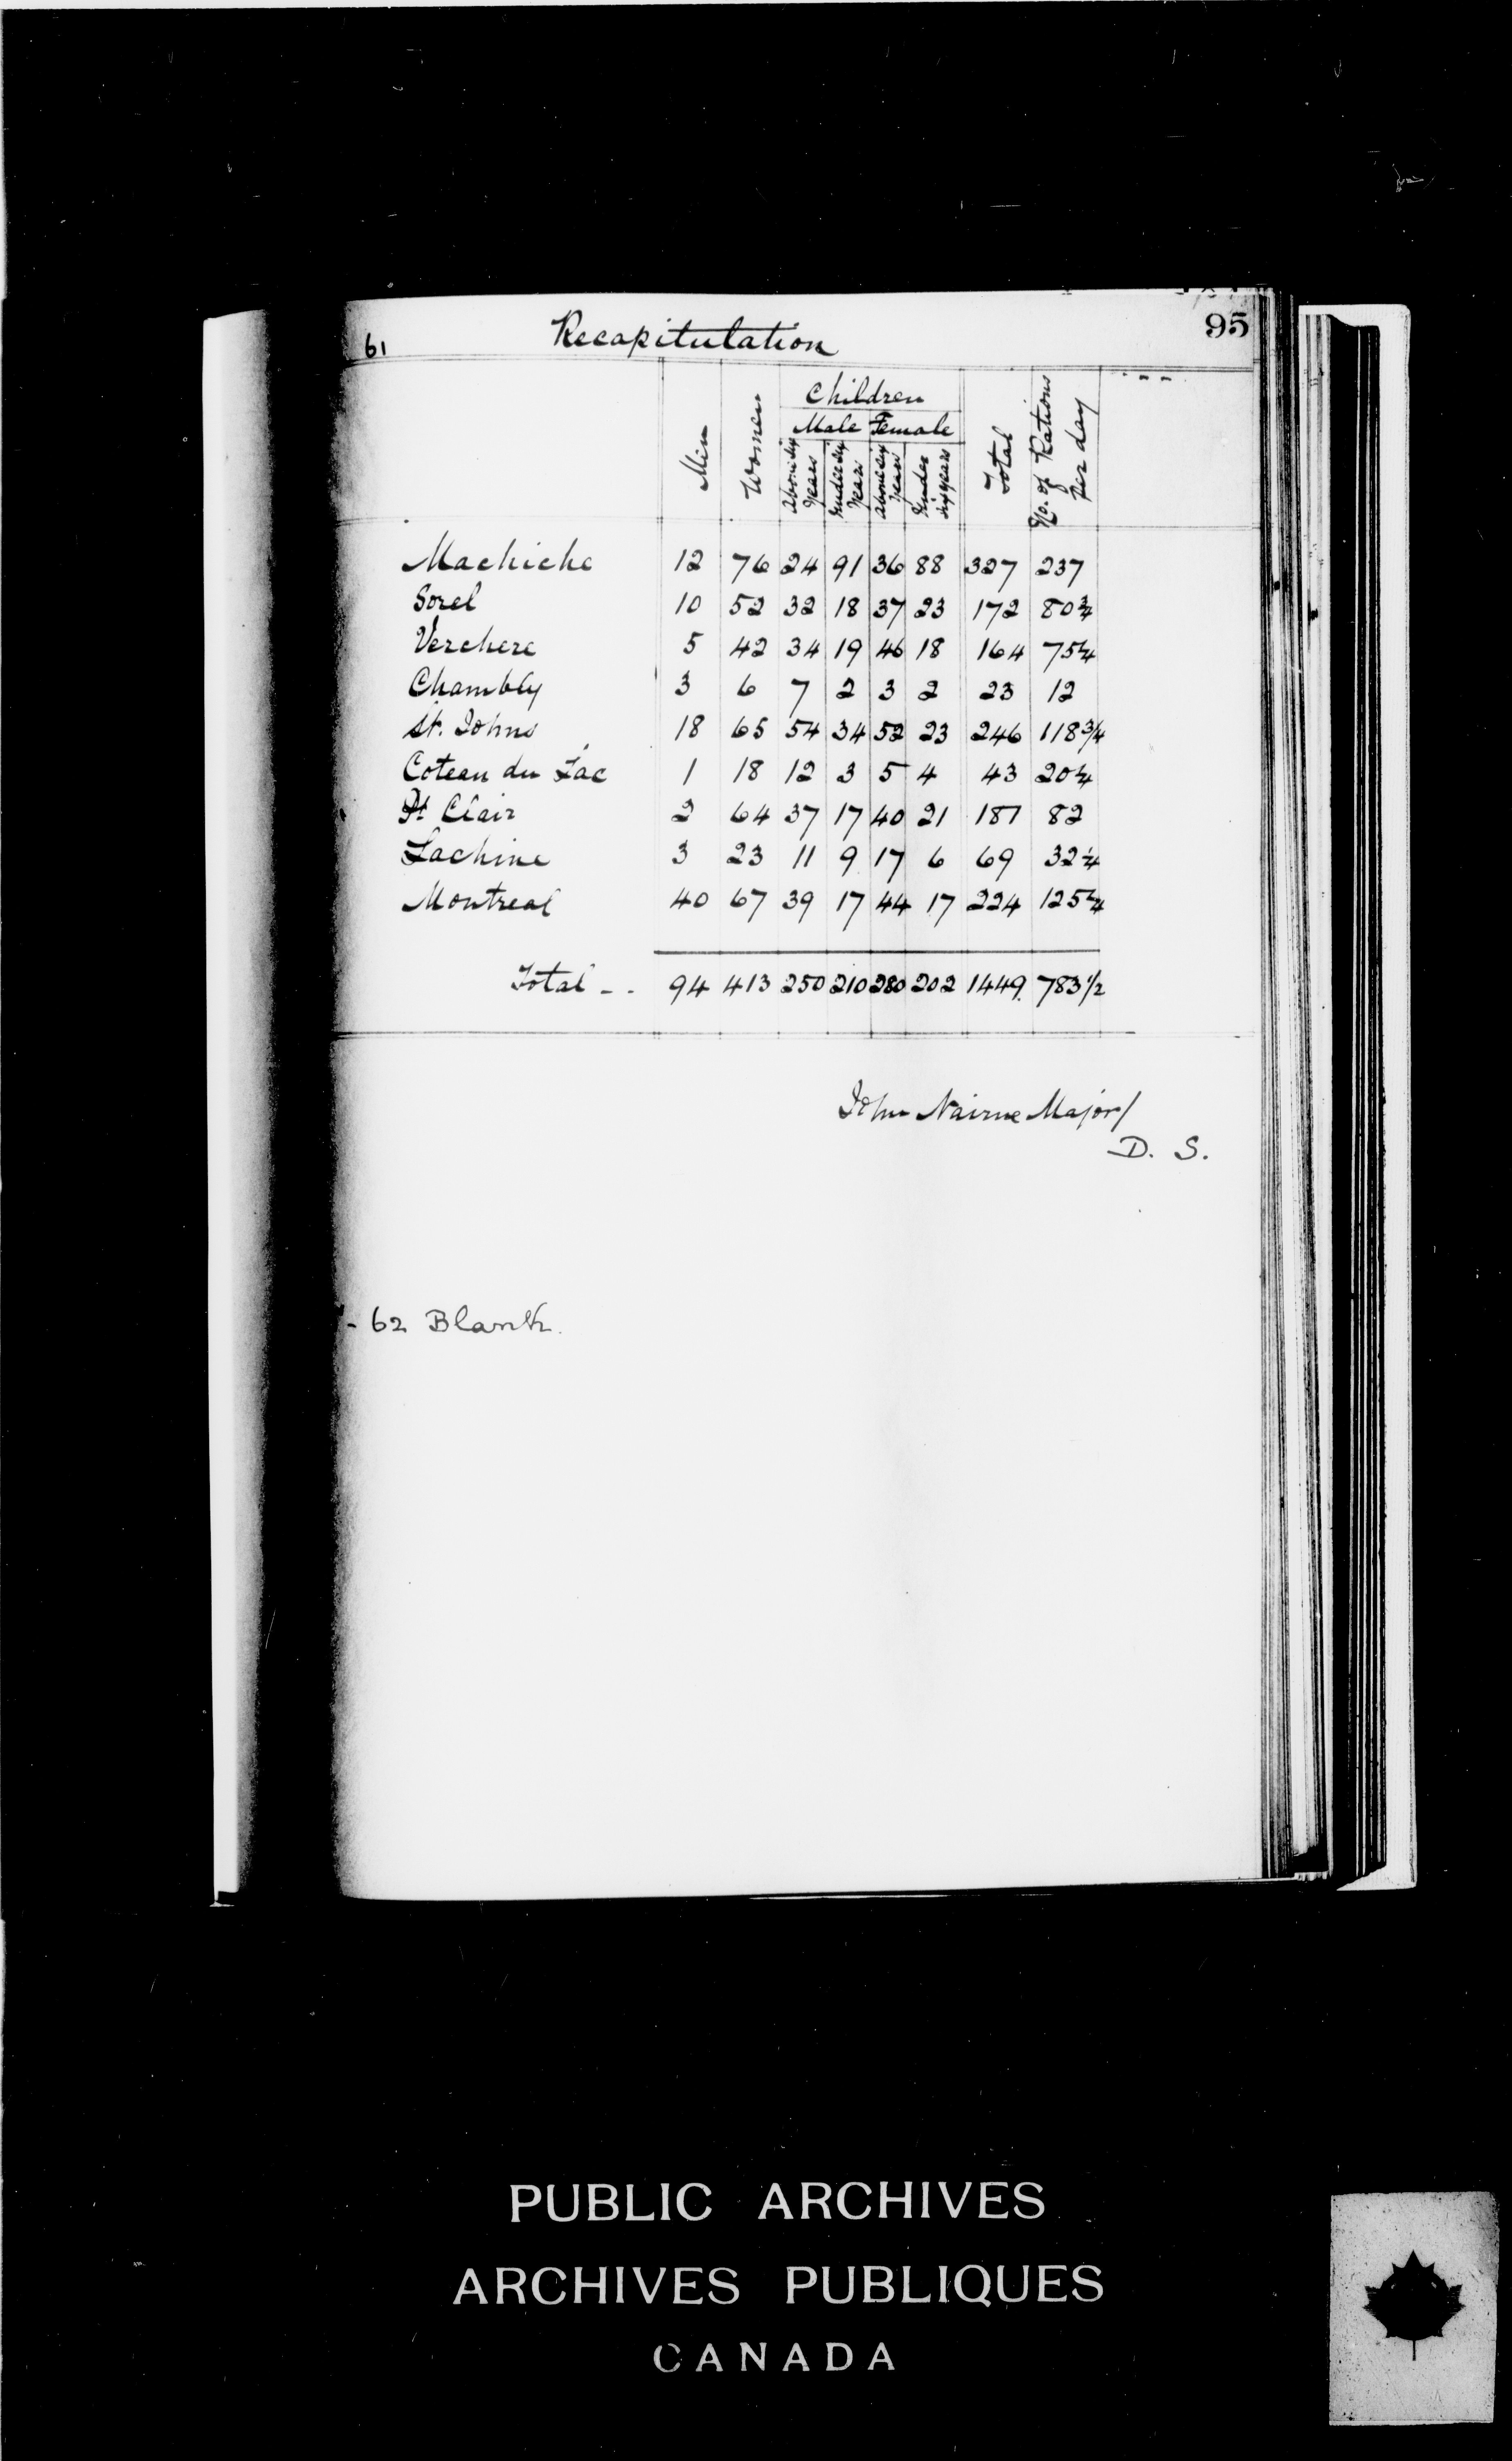 95
61 Recapitulation
Children
Male Female
Men Women above six years under six years above six years Under six years Total No. of Rations per day
Machiche 12 76 24 91 36 88 327 237
Sorel 10 52 32 18 37 23 172 80¾
Verchere 5 42 34 19 46 18 164 75¼
Chambly 3 6 7 2 3 2 23 12
St. Johns 18 65 54 34 52 23 246 118¾
Coteau du Lac 1 18 12 3 5 4 43 20¼
Pt Clair 2 64 37 17 40 21 181 82
Lachine 3 23 11 9 17 6 69 32¼
Montreal 40 67 39 17 44 17 224 125¼
Total - - 94 413 250 210 280 202 1449 783½
John Nairne Major/
D. S.
- 62 Blank.
PUBLIC ARCHIVES
ARCHIVES PUBLIQUES
CANADA